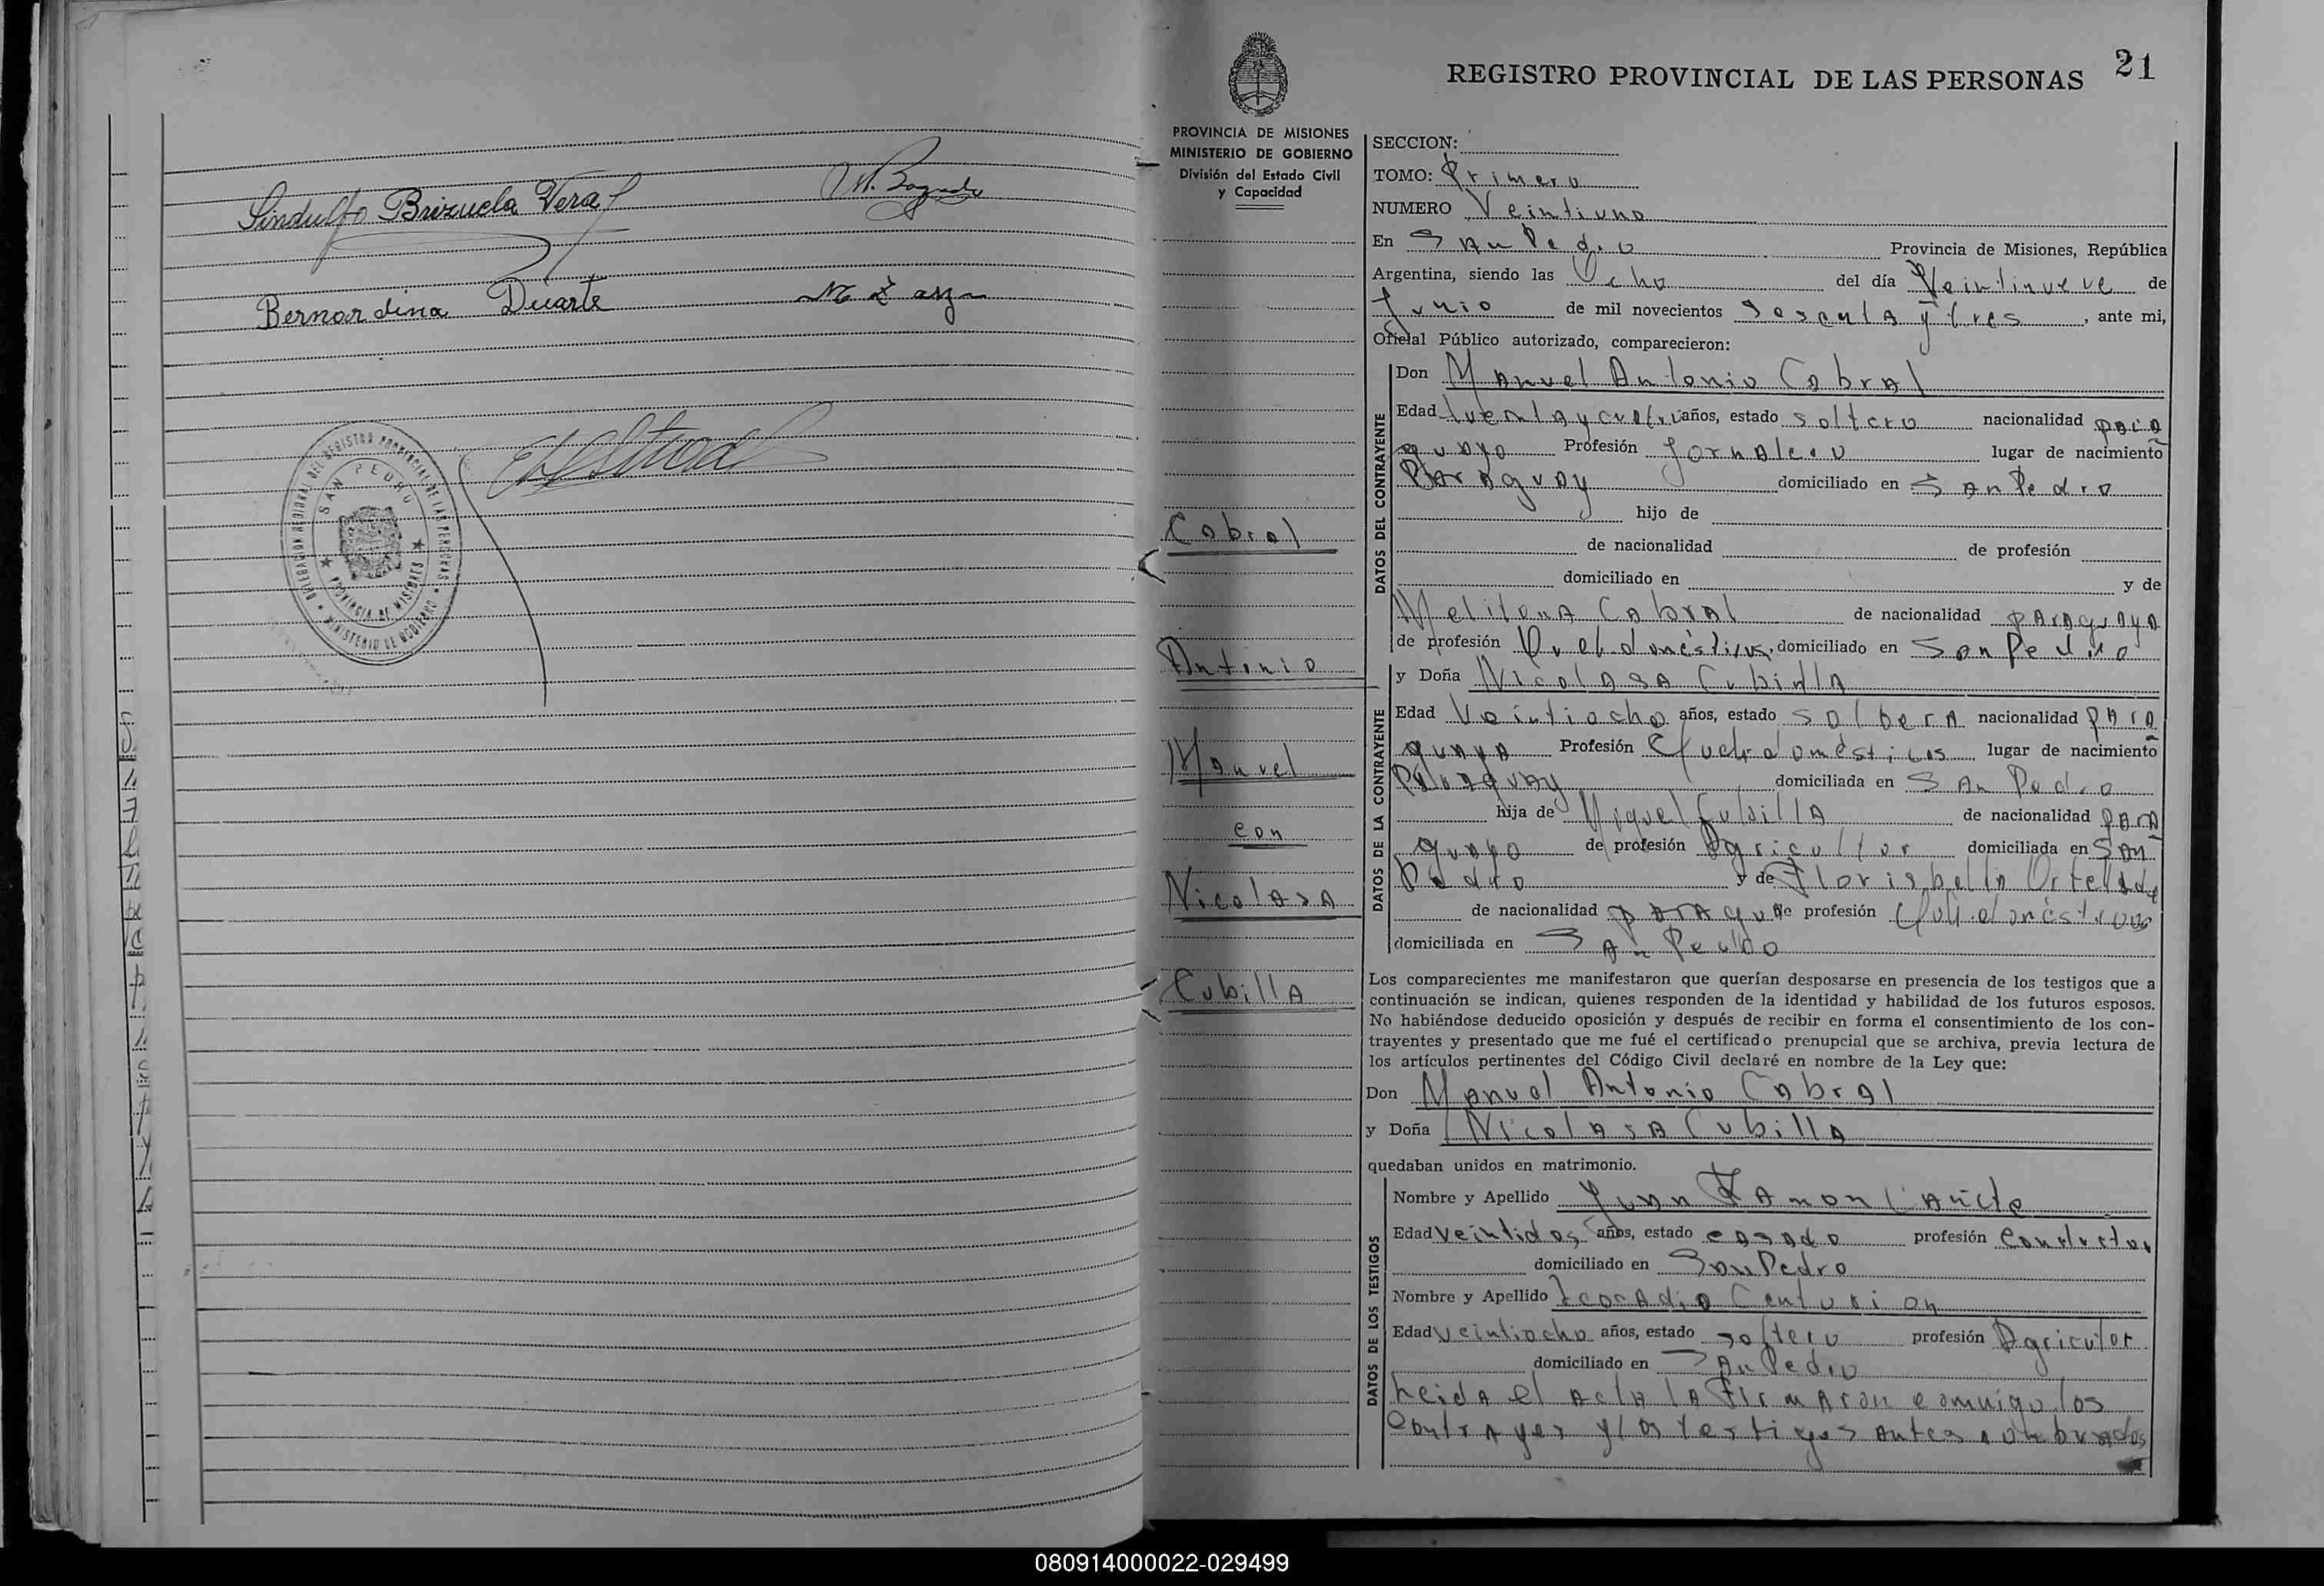 Sindulfo Brizuela Vera
Bernardina Duarte
DELEGACION REGIONAL DEL REGISTRO PROVINCIAL DE LAS PERSONAS
SAN PEDRO
PROVINCIA DE MISIONES
MINISTERIO DE GOBIERNO
21
REGISTRO PROVINCIAL DE LAS PERSONAS
PROVINCIA DE MISIONES
MINISTERIO DE GOBIERNO
División del Estado Civil
y Capacidad
Cabral
Antonio
Manuel
con
Nicolasa
Cubilla
SECCION:
TOMO: Primero
NUMERO Veintiuno
En San Pedro Provincia de Misiones, República
Argentina, siendo las Ocho del día Veintinueve de
Junio de mil novecientos Sesenta y tres, ante mi,
Oficial Público autorizado, comparecieron:
DATOS DEL CONTRAYENTE
Don Manuel Antonio Cabral
Edad años, estado soltero nacionalidad para
guayo Profesión Jornalero lugar de nacimiento
Paraguay domiciliado en San Pedro
hijo de
de nacionalidad de profesión
domiciliado en y de
Melitona Cabral de nacionalidad paraguaya
de profesión domiciliado en San Pedro
DATOS DE LA CONTRAYENTE
y Doña Nicolasa Cubilla
Edad Veintiocho años, estado soltera nacionalidad para
guaya Profesión Queh domésticos lugar de nacimiento
Paraguay domiciliada en San Pedro
hija de Miguel Cubilla de nacionalidad para
guayo de profesión Agricultor domiciliada en San
Pedro y de
de nacionalidad de profesión
domiciliada en San Pedro
Los comparecientes me manifestaron que querían desposarse en presencia de los testigos que a
continuación se indican, quienes responden de la identidad y habilidad de los futuros esposos.
No habiéndose deducido oposición y después de recibir en forma el consentimiento de los con-
trayentes y presentado que me fué el certificado prenupcial que se archiva, previa lectura de
los artículos pertinentes del Código Civil declaré en nombre de la Ley que:
Don Manuel Antonio Cabral
y Doña Nicolasa Cubilla
quedaban unidos en matrimonio.
DATOS DE LOS TESTIGOS
Nombre y Apellido Juan Ramon Cañete
Edad veintidos años, estado casado profesión Conductor
domiciliado en San Pedro
Nombre y Apellido Leocadio Centurion
Edad veintiocho años, estado soltero profesión Agricultor
domiciliado en San Pedro
Leida el acta la firmaron conmigo los
contrayes y los testigos antes nombrados
080914000022-029499